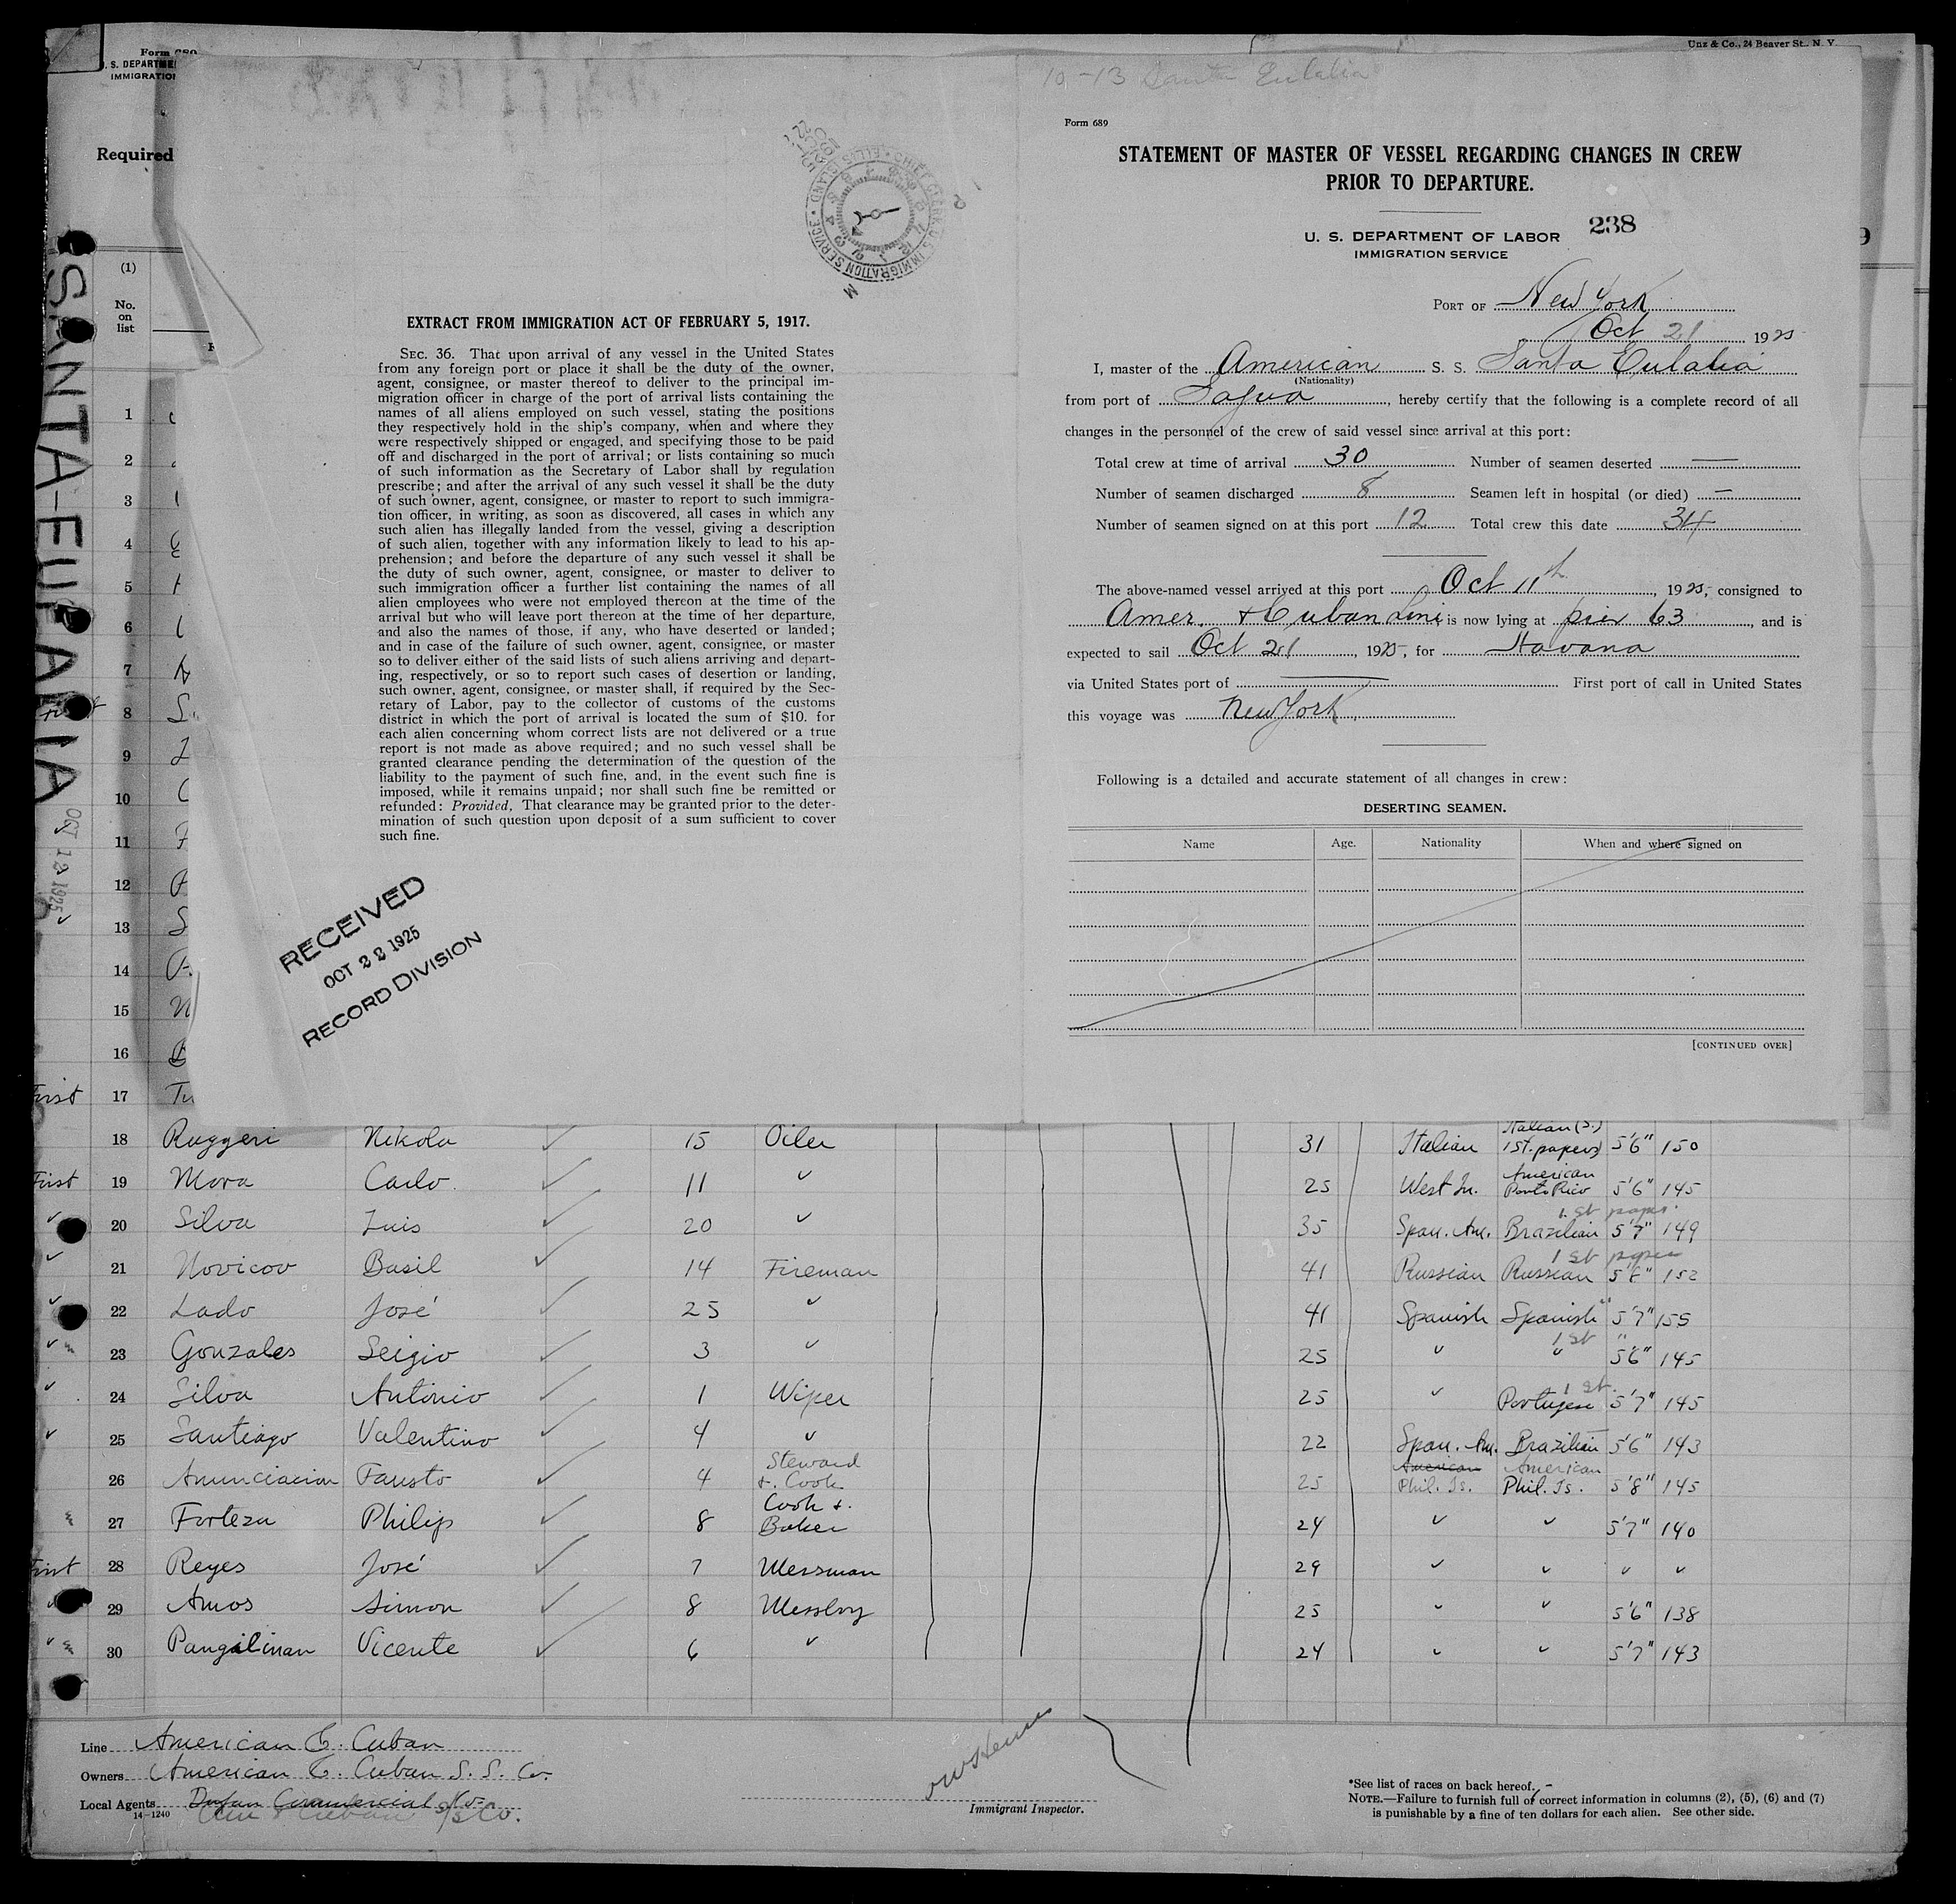 Form 689
U. S. DEPARTME
IMMIGRATION
Unz & Co., 24 Beaver St., N. Y.
Required
(1)
No.
on
list
SANTA-EULALIA
OCT 12 1925
1
2
3
4
5
6
7
8
9
10
11
12
13
14
15
16
First 17 Tu
CHIEF CLERK U.S. IMMIGRATION SERVICE · ELLIS ISLAND
EXTRACT FROM IMMIGRATION ACT OF FEBRUARY 5, 1917.
SEC. 36. That upon arrival of any vessel in the United States
from any foreign port or place it shall be the duty of the owner,
agent, consignee, or master thereof to deliver to the principal im-
migration officer in charge of the port of arrival lists containing the
names of all aliens employed on such vessel, stating the positions
they respectively hold in the ship's company, when and where they
were respectively shipped or engaged, and specifying those to be paid
off and discharged in the port of arrival; or lists containing so much
of such information as the Secretary of Labor shall by regulation
prescribe; and after the arrival of any such vessel it shall be the duty
of such owner, agent, consignee, or master to report to such immigra-
tion officer, in writing, as soon as discovered, all cases in which any
such alien has illegally landed from the vessel, giving a description
of such alien, together with any information likely to lead to his ap-
prehension; and before the departure of any such vessel it shall be
the duty of such owner, agent, consignee, or master to deliver to
such immigration officer a further list containing the names of all
alien employees who were not employed thereon at the time of the
arrival but who will leave port thereon at the time of her departure,
and also the names of those, if any, who have deserted or landed;
and in case of the failure of such owner, agent, consignee, or master
so to deliver either of the said lists of such aliens arriving and depart-
ing, respectively, or so to report such cases of desertion or landing,
such owner, agent, consignee, or master shall, if required by the Sec-
retary of Labor, pay to the collector of customs of the customs
district in which the port of arrival is located the sum of $10. for
each alien concerning whom correct lists are not delivered or a true
report is not made as above required; and no such vessel shall be
granted clearance pending the determination of the question of the
liability to the payment of such fine, and, in the event such fine is
imposed, while it remains unpaid; nor shall such fine be remitted or
refunded: Provided, That clearance may be granted prior to the deter-
mination of such question upon deposit of a sum sufficient to cover
such fine.
RECEIVED
OCT 22 1925
RECORD DIVISION
10-13 Santa Eulalia
Form 689
STATEMENT OF MASTER OF VESSEL REGARDING CHANGES IN CREW
PRIOR TO DEPARTURE.
U. S. DEPARTMENT OF LABOR 238
IMMIGRATION SERVICE
PORT OF New York
Oct 21 1925
I, master of the American S. S. Santa Eulalia
(Nationality)
from port of Sagua, hereby certify that the following is a complete record of all
changes in the personnel of the crew of said vessel since arrival at this port:
Total crew at time of arrival 30 Number of seamen deserted —
Number of seamen discharged 8 Seamen left in hospital (or died) —
Number of seamen signed on at this port 12 Total crew this date 34
The above-named vessel arrived at this port Oct 11th, 1925, consigned to
Amer. & Cuban Line is now lying at pier 63, and is
expected to sail Oct 21, 1925, for Havana
via United States port of — First port of call in United States
this voyage was New York
Following is a detailed and accurate statement of all changes in crew:
DESERTING SEAMEN.
Name Age. Nationality When and where signed on
[CONTINUED OVER]
18 Ruggeri Nikola 15 Oiler 31 Italian Italian (S.) 1st. papers) 5'6" 150
First 19 Mora Carlo 11 " 25 West In. American Porto Rico 5'6" 145
20 Silva Luis 20 " 35 Span. Am. 1 st paper Brazilian 5'7" 149
21 Novicov Basil 14 Fireman 41 Russian 1 st paper Russian 5'8" 152
22 Lado José 25 " 41 Spanish Spanish 5'7" 155
23 Gonzales Seigio 3 " 25 " 1 st " " 5'6" 145
24 Silva Antonio 1 Wiper 25 " 1 st. Portugese 5'7" 145
25 Santiago Valentino 4 " 22 Span. Am. Brazilian 5'6" 143
26 Anunciacion Fausto 4 Steward & Cook 25 American Phil. Is. American Phil. Is. 5'8" 145
27 Forteza Philip 8 Cook & Baker 24 " " 5'7" 140
First 28 Reyes José 7 Messman 29 " " " "
29 Amos Simon 8 Messboy 25 " " 5'6" 138
30 Pangilinan Vicente 6 " 24 " " 5'7" 143
Line American & Cuban
Owners American & Cuban S. S. Co.
Local Agents Commercial Co.
Am & Cuban S/S Co.
14-1240
Immigrant Inspector.
*See list of races on back hereof.
NOTE.—Failure to furnish full or correct information in columns (2), (5), (6) and (7)
is punishable by a fine of ten dollars for each alien. See other side.